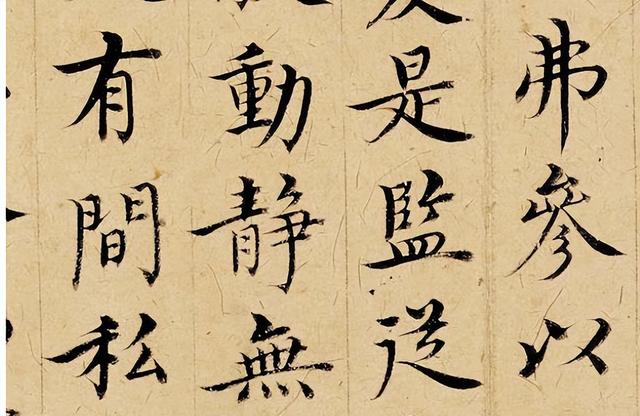 弗參以
是監從
動靜無
有間私